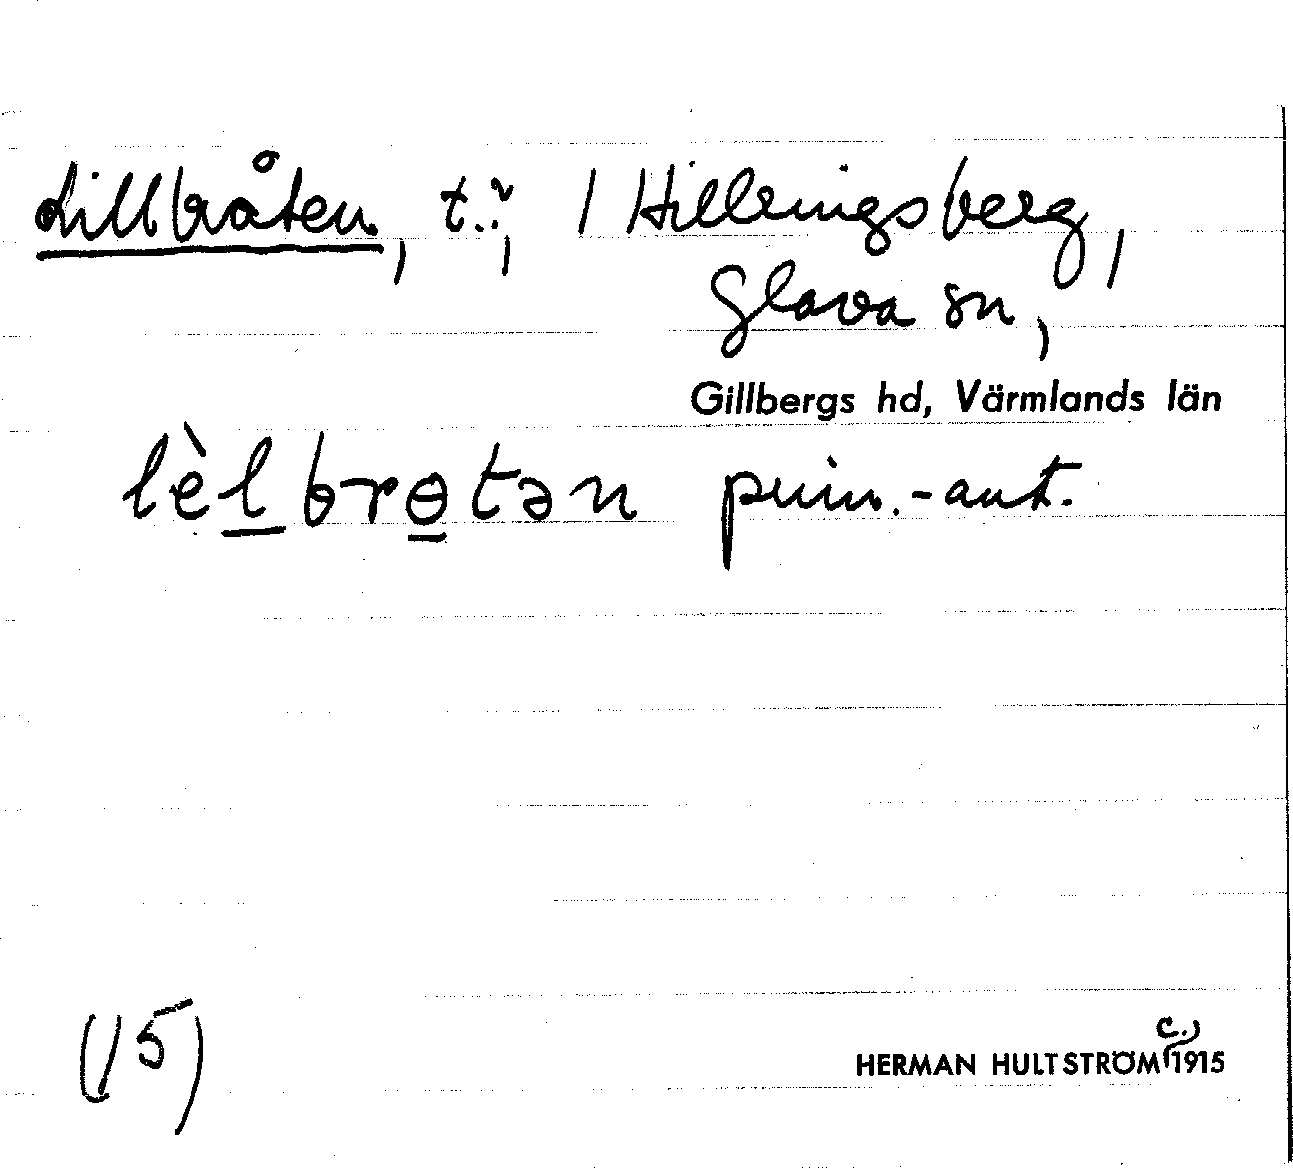 Lillbråten, t.; / Hillringsberg,
Glava sn,
Gillbergs hd, Värmlands län
lèlbrotən puin.-aut.
(15)
HERMAN HULTSTRÖM c. 1915